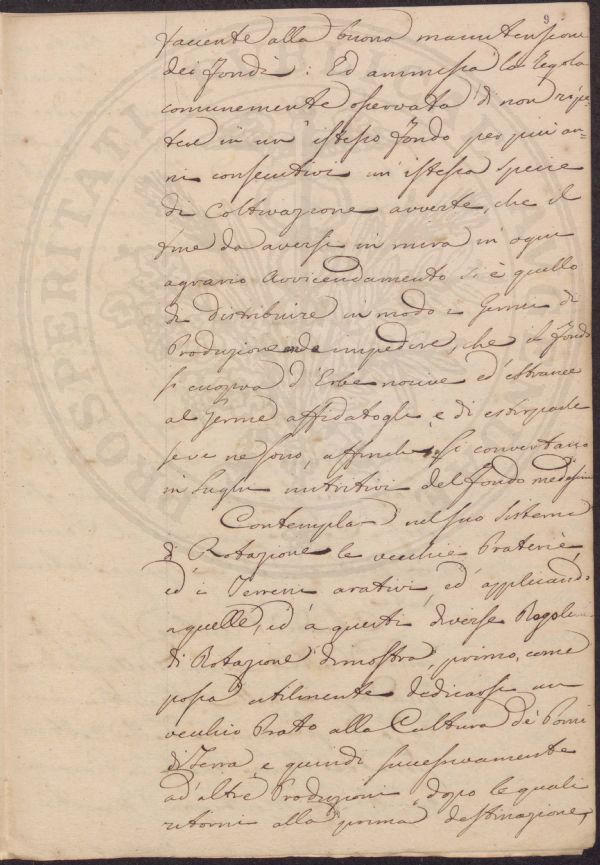 9
faciente alla buona manutensione
dei Fondi: Ed ammessa la regola
comunemente osservata di non ripe=
tere in un' istesso Fondo per più an=
ni consecutivi un' istessa specie
di Coltivazione avverte, che il
fine da aversi in mira in ogni
agrario Avvicendamento si è quello
di distribuire in modo i Generi di
Produzione da impedire, che il Fondo
si cuopra d'Erbe nocive ed' estranee
al Germe affidatogli, e di estirparle
se ve ne sono, affinché si convertano
in Sughi nutritivi del Fondo medesimo
Contempla nel suo Sistema
di Rotazione le vecchie Praterie,
ed' i Terreni arativi, ed' applicando
a quelle, ed' a questi diverse Regole
di Rotazione dimostra, primo, come
possa utilmente dedicarsi un
vecchio Prato alla Cultura de' Pomi
di Terra, e quindi successivamente
ad' altre Produzioni, dopo le quali
ritorni alla prima destinazione,
PROSPERITATI